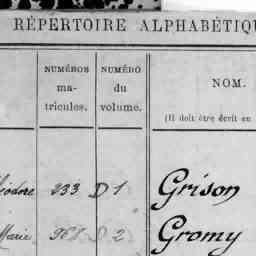 RÉPERTOIRE ALPHABÉTIQU
NUMÉROS matricules. NUMÉRO du volume. NOM.
(Il doit être écrit en
éodore 933 D 1 Grison
Marie 2 Gromy